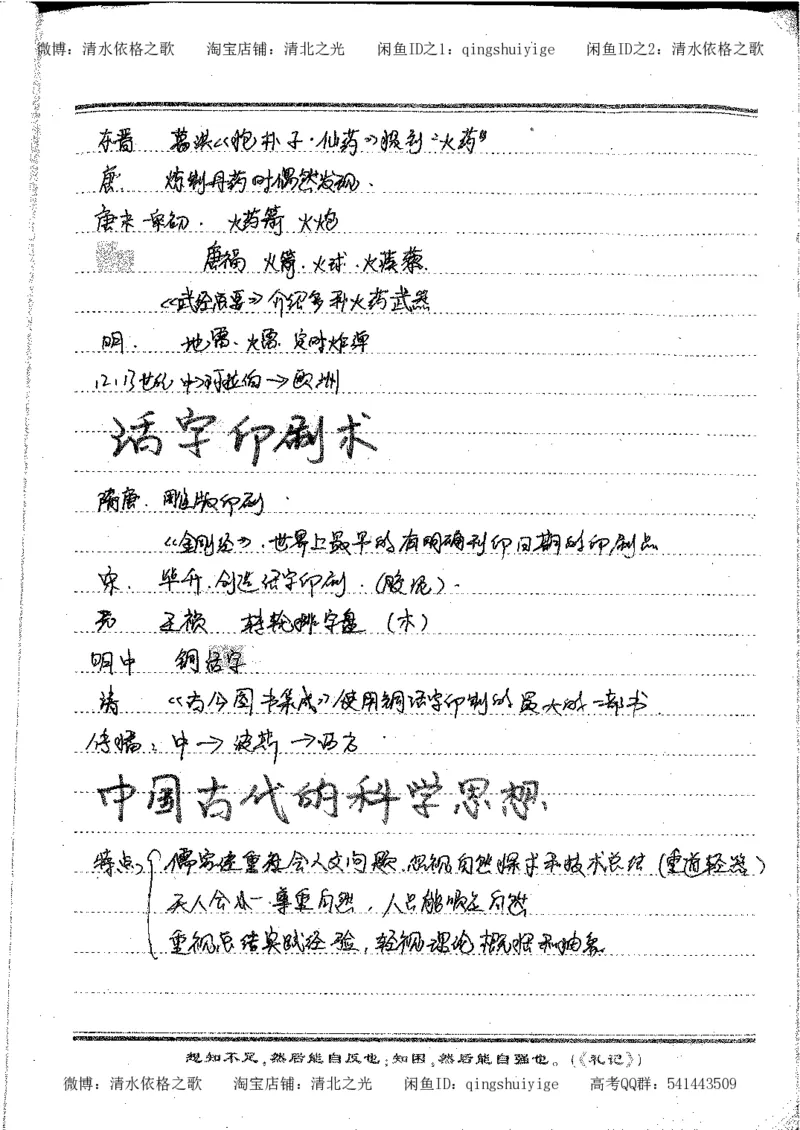 微博：清水依格之歌 淘宝店铺：清北之光 闲鱼ID之1：qingshuiyige 闲鱼ID之2：清水依格之歌
东晋 葛洪《抱朴子·仙药》提到“火药”
唐. 炼制丹药时偶然发现.
唐末宋初. 火药箭 火炮
唐福 火箭.火球.火蒺藜.
《武经总要》介绍多种火药武器
明. 地雷、水雷. 定时炸弹
12.13世纪 中→阿拉伯→欧洲
活字印刷术
隋唐. 雕版印刷
《金刚经》.世界上最早的有明确刊印日期的印刷品
宋. 毕升.创造活字印刷.(胶泥).
元 王祯 转轮排字盘 (木)
明中 铜活字
清 《古今图书集成》使用铜活字印制的最大的一部书.
传播：中→波斯→西方
中国古代的科学思想
特点 儒家注重社会人文问题.忽视自然探求和技术总结(重道轻器)
天人合一 尊重自然，人只能顺应自然
重视总结实践经验，轻视理论概括和抽象.
想知不足,然后能自反也;知困,然后能自强也。(《礼记》)
微博：清水依格之歌 淘宝店铺：清北之光 闲鱼ID：qingshuiyige 高考QQ群：541443509